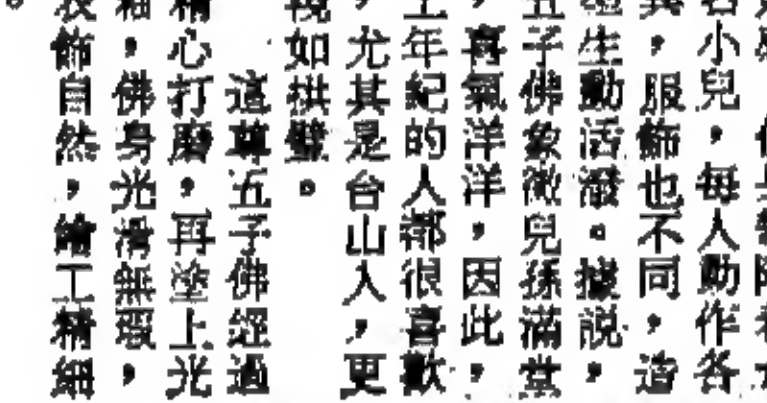 名小兒，每人動作各
異，服飾也不同，造
生動活潑。據説，
五子佛象徵兒孫滿堂
，喜氣洋洋，因此，
上年紀的人都很喜歡
，尤其是台山人，更
視如拱璧。
這尊五子佛經過
精心打磨，再塗上光
釉，佛身光滑無瑕，
衣飾自然，繪工精細
。